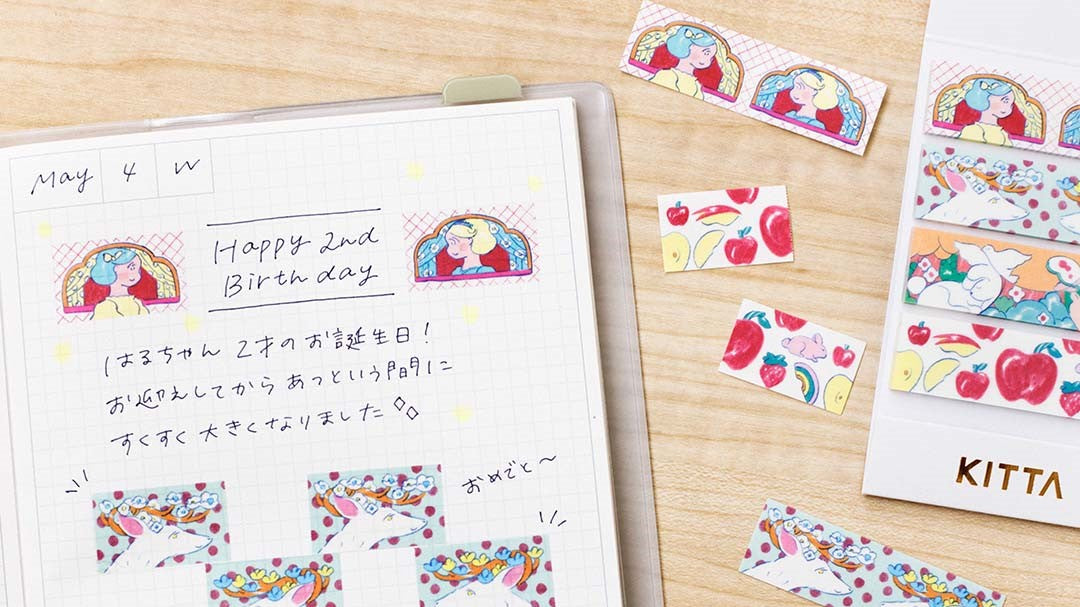 May 4 W
Happy 2nd
Birthday
はるちゃん 2才のお誕生日!
お迎えしてからあっという間に
すくすく大きくなりました
おめでと〜
KITTA